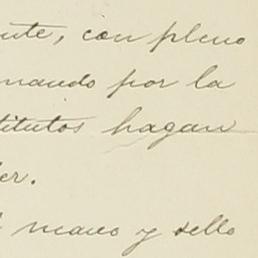 ente, con pleno
mando por la
titutos hagan
er.
mano y sello